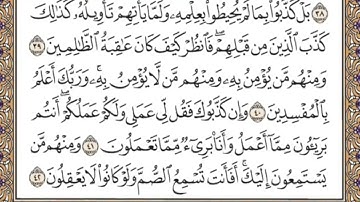 ٣٨ بَلْ كَذَّبُوا۟ بِمَا لَمْ يُحِيطُوا۟ بِعِلْمِهِۦ وَلَمَّا يَأْتِهِمْ تَأْوِيلُهُۥ ۚ كَذَٰلِكَ
كَذَّبَ ٱلَّذِينَ مِن قَبْلِهِمْ ۖ فَٱنظُرْ كَيْفَ كَانَ عَـٰقِبَةُ ٱلظَّـٰلِمِينَ ٣٩
وَمِنْهُم مَّن يُؤْمِنُ بِهِۦ وَمِنْهُم مَّن لَّا يُؤْمِنُ بِهِۦ ۚ وَرَبُّكَ أَعْلَمُ
بِٱلْمُفْسِدِينَ ٤٠ وَإِن كَذَّبُوكَ فَقُل لِّى عَمَلِى وَلَكُمْ عَمَلُكُمْ ۖ أَنتُم
بَرِيٓـُٔونَ مِمَّآ أَعْمَلُ وَأَنَا۠ بَرِىٓءٌ مِّمَّا تَعْمَلُونَ ٤١ وَمِنْهُم مَّن
يَسْتَمِعُونَ إِلَيْكَ ۚ أَفَأَنتَ تُسْمِعُ ٱلصُّمَّ وَلَوْ كَانُوا۟ لَا يَعْقِلُونَ ٤٢